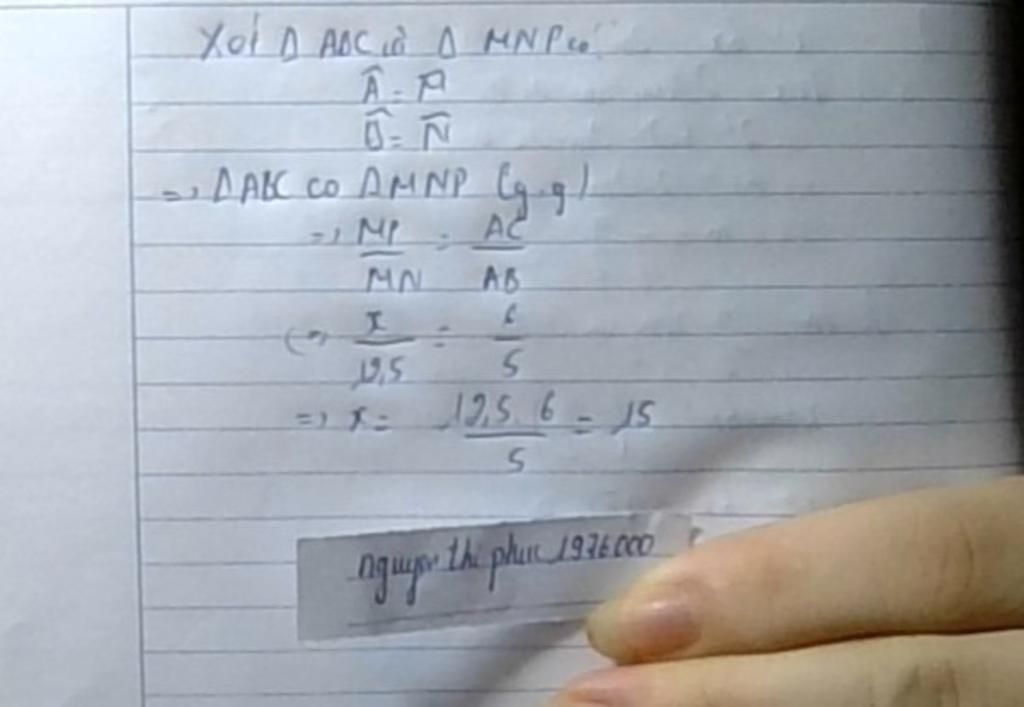 Xét Δ ABC và Δ MNP có
Â = M̂
B̂ = N̂
=> ΔABC ∽ ΔMNP (g.g)
=> MP/MN = AC/AB
<=> x/12,5 = 6/5
=> x = 12,5.6/5 = 15
nguyen thi phuc 1976000